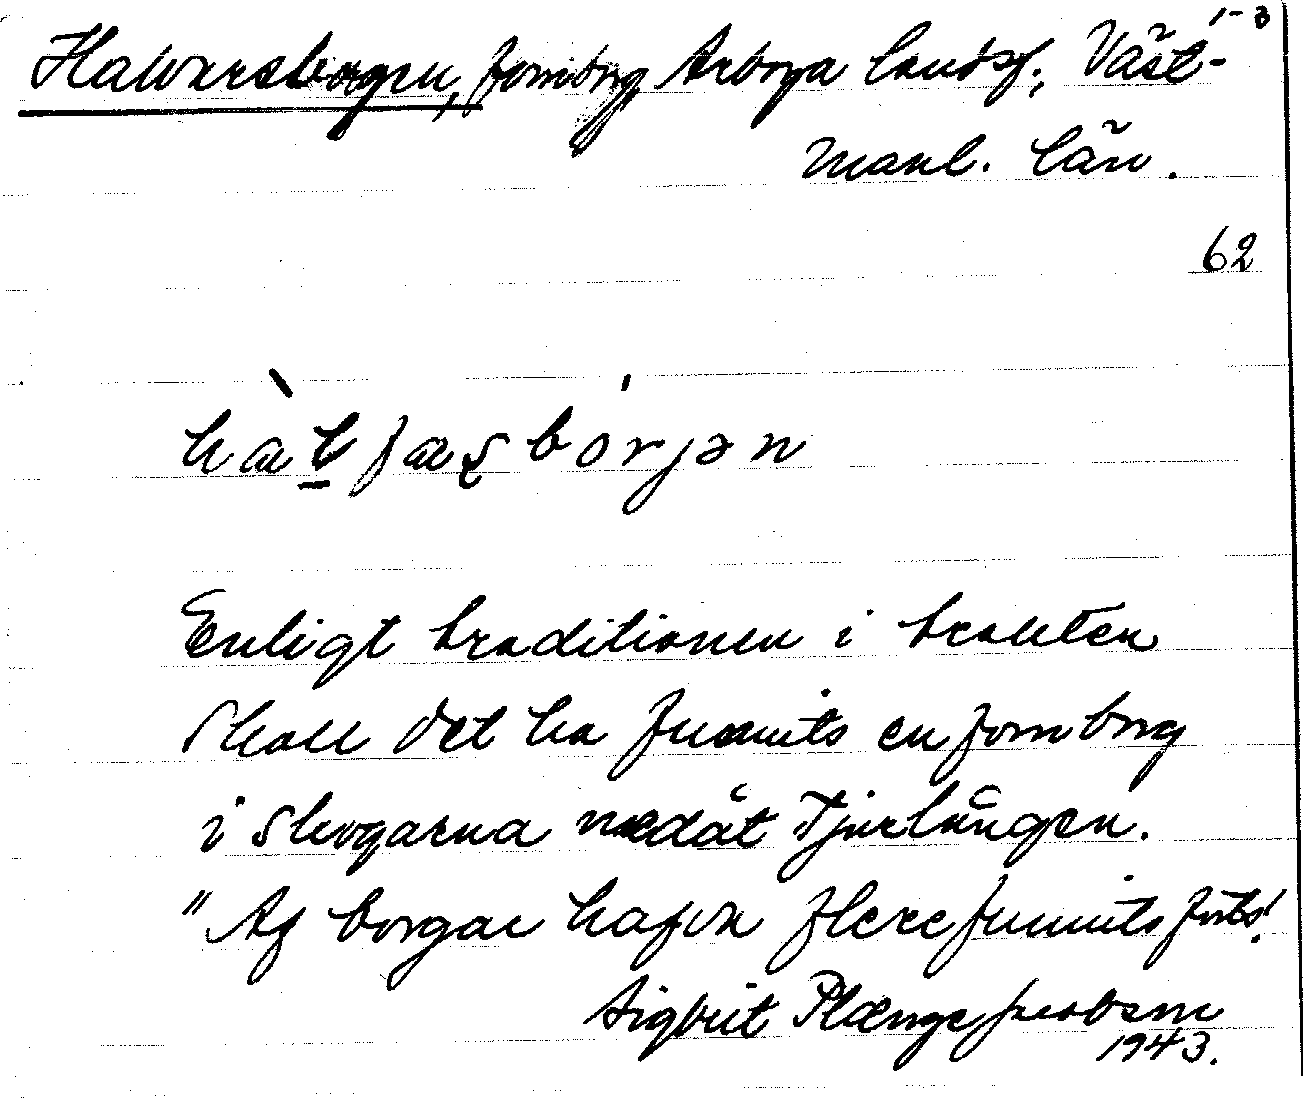 1-3
Halvarsborgen, fornborg, Arboga landsf., Väst-
manl. län.
62
Enligt traditionen i trakten
skall det ha funnits en fornborg
i skogarna nedåt Tjurlången.
"Af borgar hafva flere funnits forts!
Sigbrit Plænge Jacobson
1943.